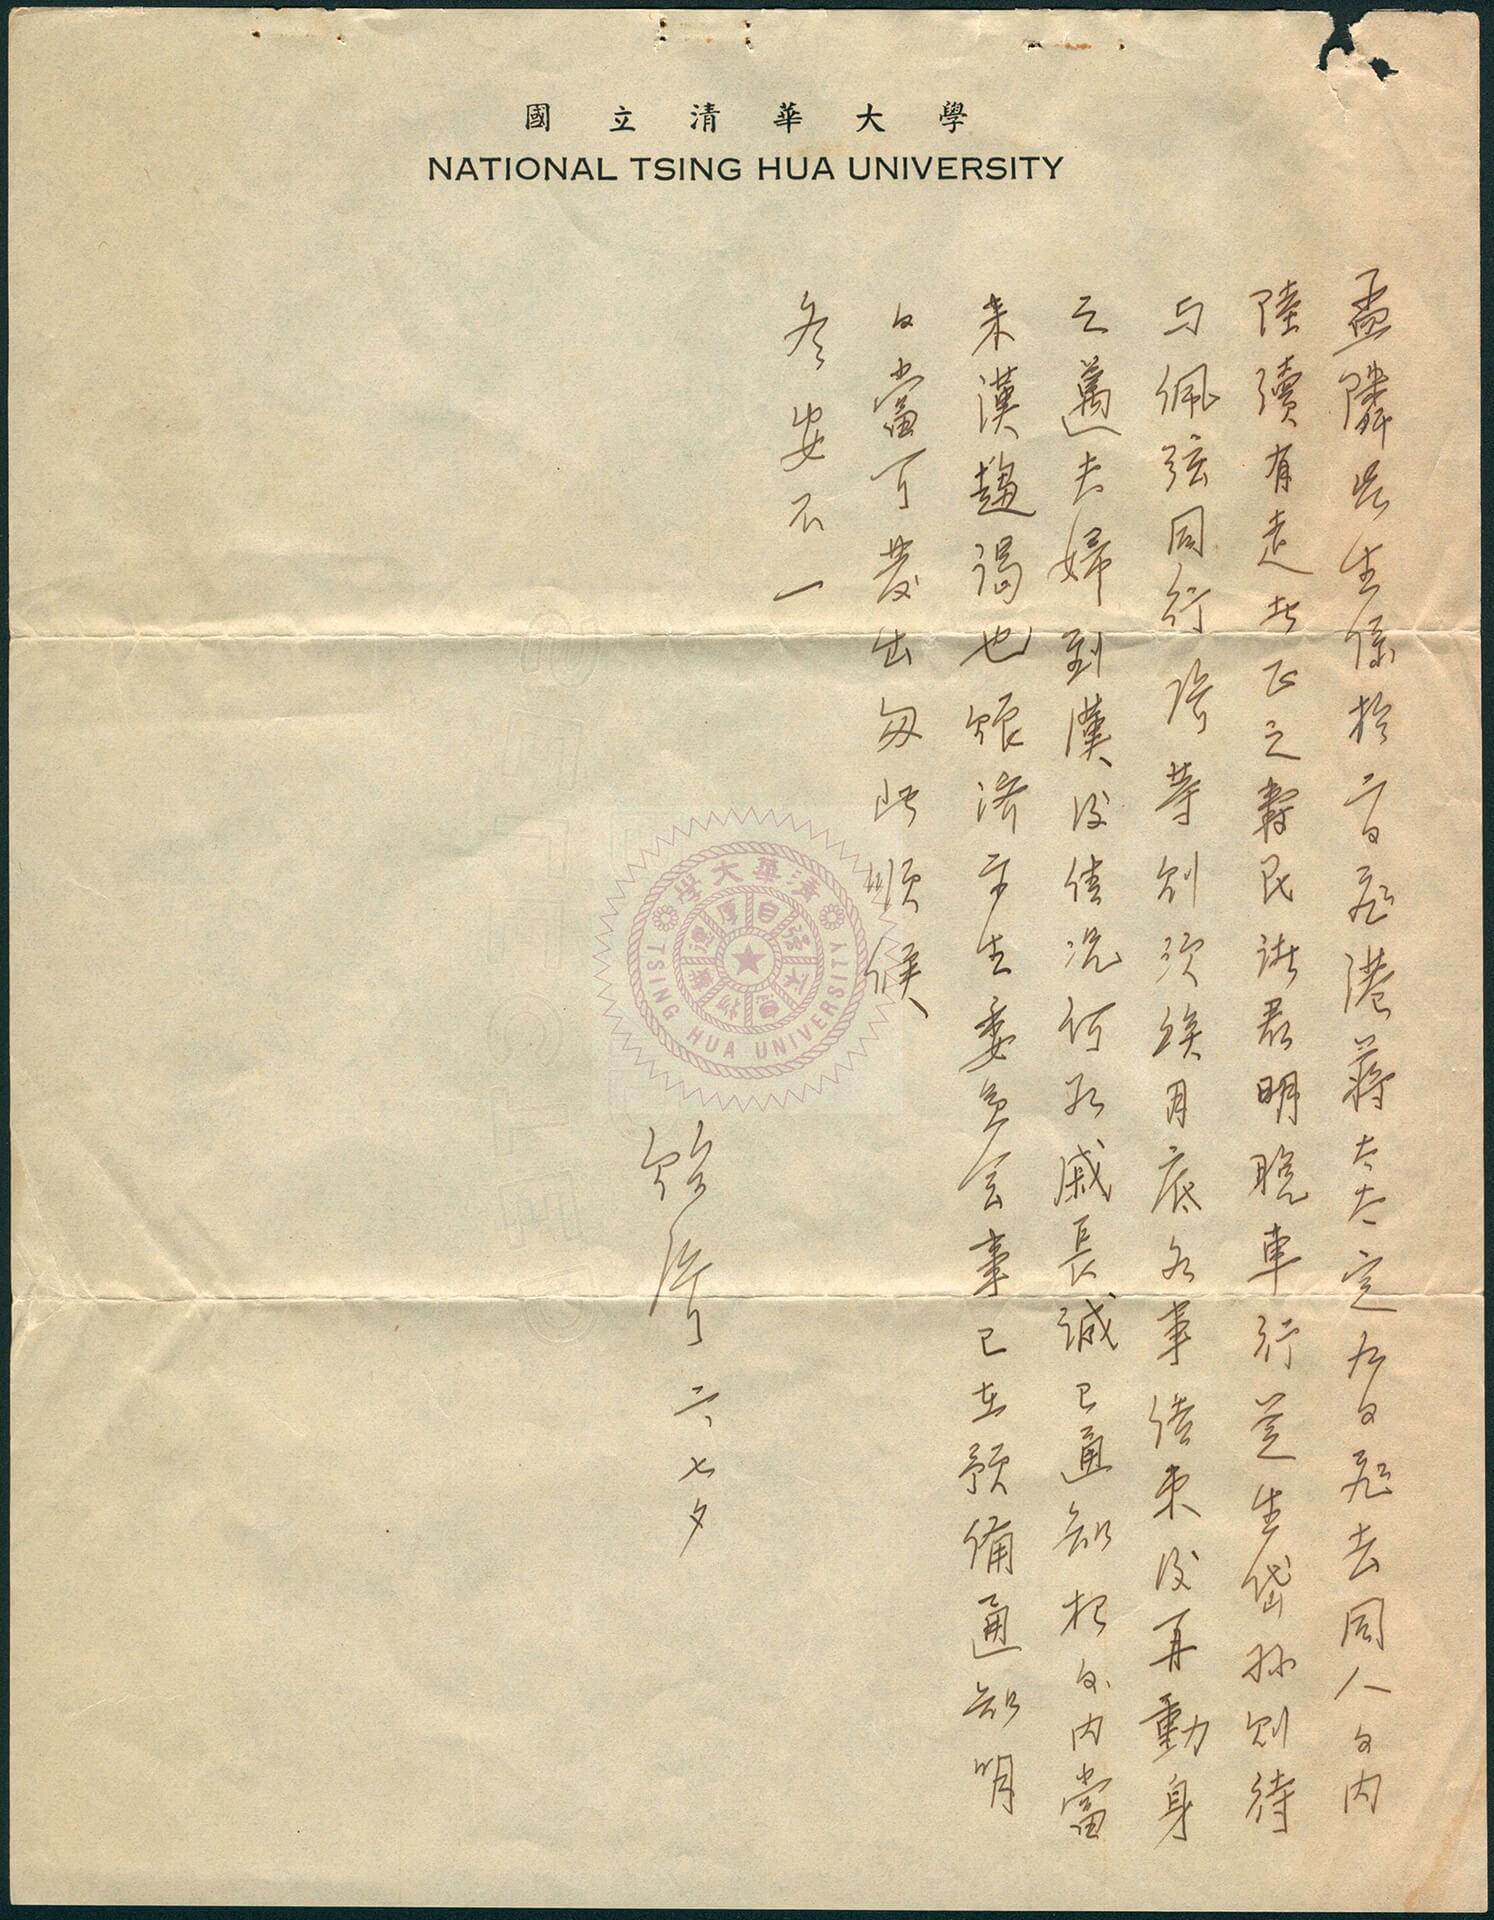 國立清華大學
NATIONAL TSING HUA UNIVERSITY
孟隣先生係於二日飛港蔣太太定九日飛去同人日內
陸續有走者正之壽民諸君明晚車行芝生岱孫則待
与佩弦同行 等則須俟月底各事結束後再動身
之邁夫婦到漢後情况何如戚長誠已通知想日內當
來漢趨謁也賬濟 生委員会事已在預備通知明
日當可發出匆此順候
冬安不一
 六、七夕
清華大學
TSING HUA UNIVERSITY
自強不息
厚德載物